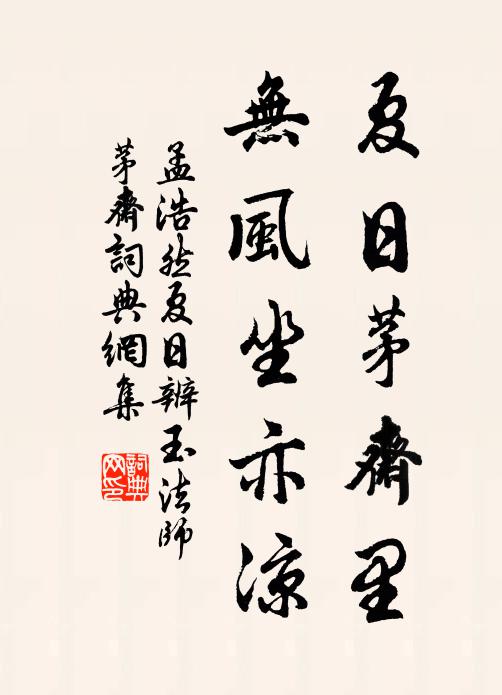 夏日茅齋里
無風坐亦凉
孟浩然夏日辨玉法師
茅齋詞典網集
詞典网印